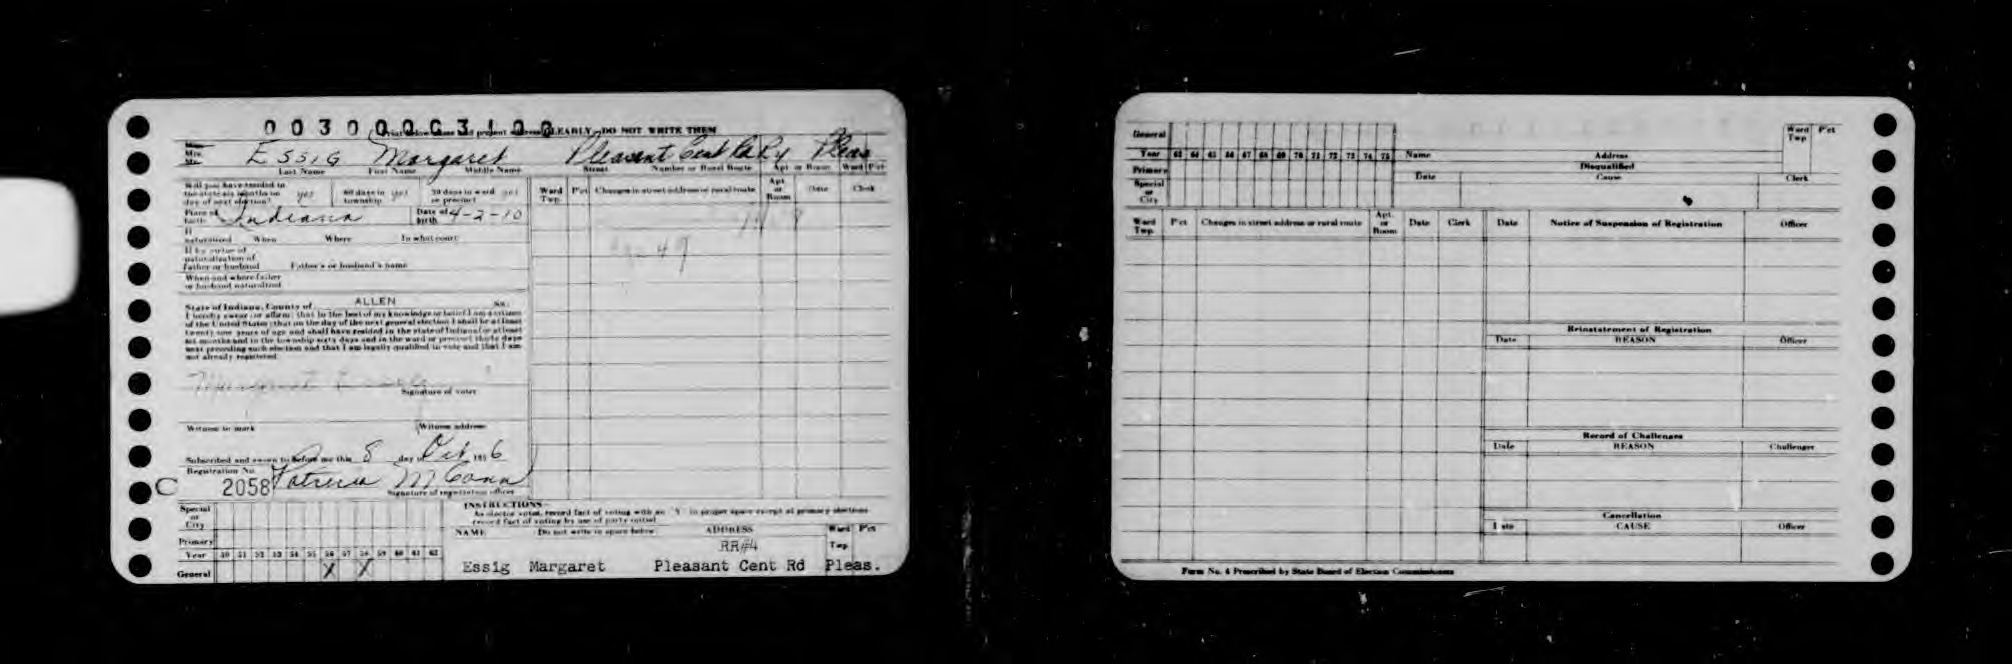 003000C3100
Print below name and present address CLEARLY—DO NOT WRITE THEM
Mrs. Essig Margaret Pleasant Cent Rd Pleas
Last Name First Name Middle Name Street Number or Rural Route Apt or Room Ward P'ct
Will you have resided in the state six months on day of next election? yes 60 days in township yes 30 days in ward or precinct yes
Place of birth Indiana Date of birth 4-2-10
If naturalized When Where In what court
If by virtue of naturalization of father or husband Father's or husband's name
When and where father or husband naturalized
State of Indiana, County of ALLEN SS:
I hereby swear (or affirm) that to the best of my knowledge or belief I am a citizen
of the United States; that on the day of the next general election I shall be at least
twenty-one years of age and shall have resided in the state of Indiana for at least
six months and in the township sixty days and in the ward or precinct thirty days
next preceding such election and that I am legally qualified to vote and that I am
not already registered.
Margaret Essig
Signature of voter
Witness to mark Witness address
Subscribed and sworn to before me this 8 day of Oct 1956
Registration No.
C 2058 Patricia McCann
Signature of registration officer
Ward Twp. P'ct Changes in street address or rural route Apt. or Room Date Clerk
49
Special or City
Primary
Year 50 51 52 53 54 55 56 57 58 59 60 61 62
General X X
INSTRUCTIONS—
As elector votes, record fact of voting with an "X" in proper space except at primary elections
record fact of voting by use of party initial
NAME Do not write in space below ADDRESS Ward Twp P'ct
RR#4
Essig Margaret Pleasant Cent Rd Pleas.
General
Year 63 64 65 66 67 68 69 70 71 72 73 74 75 Name Address Ward Twp P'ct
Primary Disqualified
Special or City Date Cause Clerk
Ward Twp. P'ct Changes in street address or rural route Apt. or Room Date Clerk Date Notice of Suspension of Registration Officer
Reinstatement of Registration
Date REASON Officer
Record of Challenges
Date REASON Challenger
Cancellation
Date CAUSE Officer
Form No. 4 Prescribed by State Board of Election Commissioners